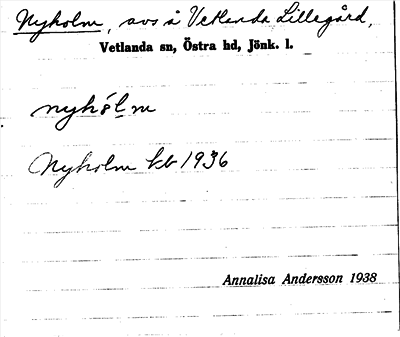 Nyholm, avs å Vetlanda Lillegård,
Vetlanda sn, Östra hd, Jönk. l.
nyhólm
Nyholm kb 1936
Annalisa Andersson 1938